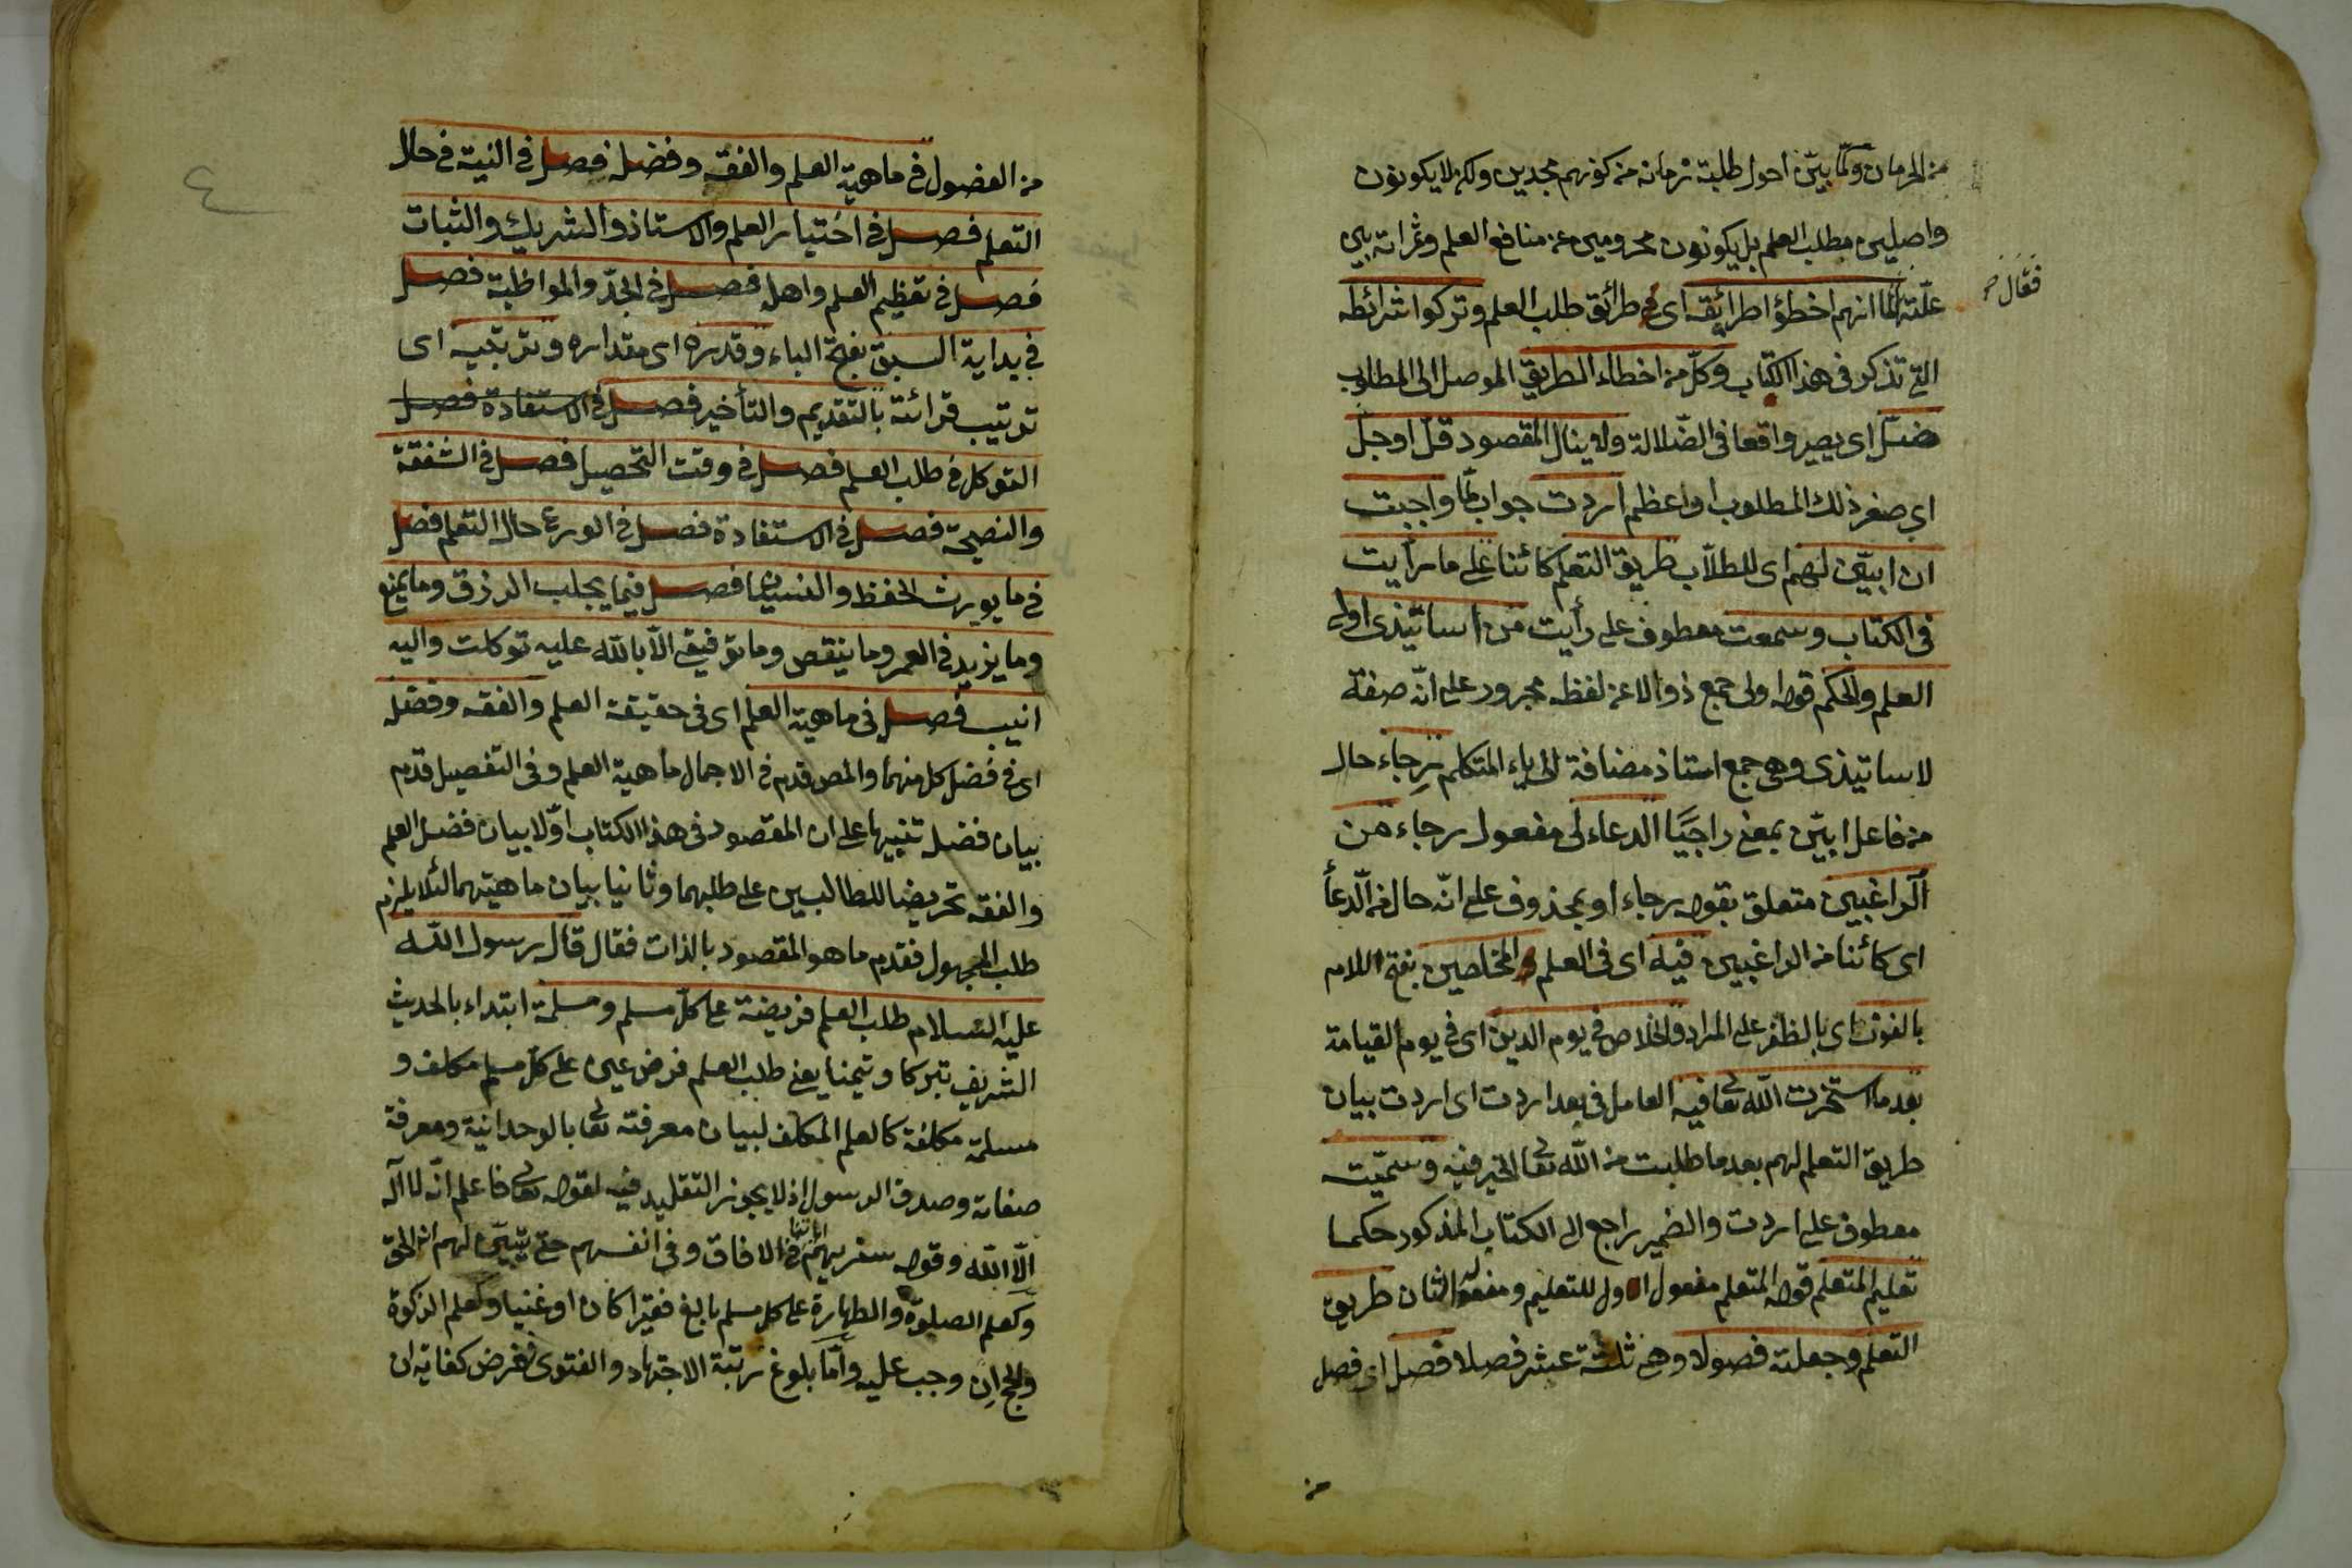 من الحرمان ولما بيّن احول طلبة زمانه من كونهم مجدين ولكن لا يكونون
واصلين مطلب العلم بل يكونون محرومين عن منافع العلم وثمراته بين
علّته لما انهم اخطؤا طرائقه اى فى طرائق طلب العلم وتركوا شرائطه
فقال صح
التى تذكر فى هذا الكتاب وكلّ من اخطاء الطريق الموصل الى المطلوب
ضلّ اى يصير واقعا فى الضّلالة ولا ينال المقصود قلّ او جلّ
اى صغر ذلك المطلوب او اعظم اردت جواب لمّا واجبت
ان ابيّن لهم اى للطلّاب طريق التعلم كائنا على ما رأيت
فى الكتاب وسمعت معطوف على رأيت من اساتيذى اولى
العلم والحكم قوله اولى جمع ذو لا عن لفظه مجرور على انّه صفة
لاساتيذى وهى جمع استاذ مضافة الى ياء المتكلم رجاء حال
من فاعل ابيّن بمعنى راجيًا الدعاء لى مفعول رجاء من
الراغبين متعلق بقوله رجاء او بمحذوف على انّه حال من الدّعأ
اى كائنا من الراغبين فيه اى فى العلم و المخلصين بفتح اللام
بالفوز اى بالظفر على المراد والخلاص فى يوم الدين اى فى يوم القيامة
بعد ما استخرت الله تعالى فيه العامل فى بعد اردت اى اردت بيان
طريق التعلم لهم بعد ما طلبت من الله تعالى الخير فيه وسمّيت
معطوف على اردت والضمير راجع الى الكتاب المذكور حكما
تعليم المتعلم قوله المتعلم مفعول اول للتعليم ومفعوله الثان طريق
التعلم وجعلته فصولا وهى ثلثة عشر فصلا فصل اى فصل
من
٤
من الفصول فى ماهية العلم والفقه وفضله فصل فى النية فى حال
التعلم فصل فى اختيار العلم والاستاذ والشريك والثبات
فصل فى تعظيم العلم واهله فصل فى الجدّ والمواظبة فصل
فى بداية السبق بفتح الباء وقدره اى مقداره وترتيبه اى
ترتيب قرائته بالتقديم والتأخير فصل فى الاستفادة فصل
التوكل فى طلب العلم فصل فى وقت التحصيل فصل فى الشفقة
والنصيحة فصل فى الاستفادة فصل فى الورع حال التعلم فصل
فى ما يورث الحفظ والنسيان فصل فيما يجلب الرزق وما يمنع
وما يزيد فى العمر وما ينقص وما توفيقى الّا بالله عليه توكلت واليه
انيب فصل فى ماهية العلم اى فى حقيقة العلم والفقه وفضله
اى فى فضل كل منهما والمص قدم فى الاجمال ماهية العلم وفى التفصيل قدم
بيان فضله تنبيها على ان المقصود فى هذا الكتاب اوّلا بيان فضل العلم
والفقه تحريضا للطالبين على طلبهما وثانيا بيان ماهيتهما لئلا يلزم
طلب المجهول فقدم ما هو المقصود بالذات فقال قال رسول الله
عليه السّلام طلب العلم فريضة على كلّ مسلم ومسلمة ابتداء بالحديث
الشريف تبركا وتيمنا يعنى طلب العلم فرض عين على كلّ مسلم مكلف و
مسلمة مكلفة كالعلم المكلف لبيان معرفته تعالى بالوحدانية ومعرفة
صفاته وصدق الرسول اذ لا يجوز التقليد فيه لقوله تعالى فاعلم انّه لا اله
الّا الله وقوله سنريهم اياتنا فى الافاق وفى انفسهم حتى يتبيّن لهم انه الحق
وكعلم الصلوة والطهارة على كل مسلم بالغ فقيرا كان او غنيا وكعلم الزكوة
والحج ان وجب عليه وامّا بلوغ رتبة الاجتهاد والفتوى ففرض كفاية ان